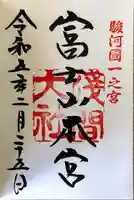 駿河國一之宮
富士山本宮
淺間大社
令和五年二月二十五日